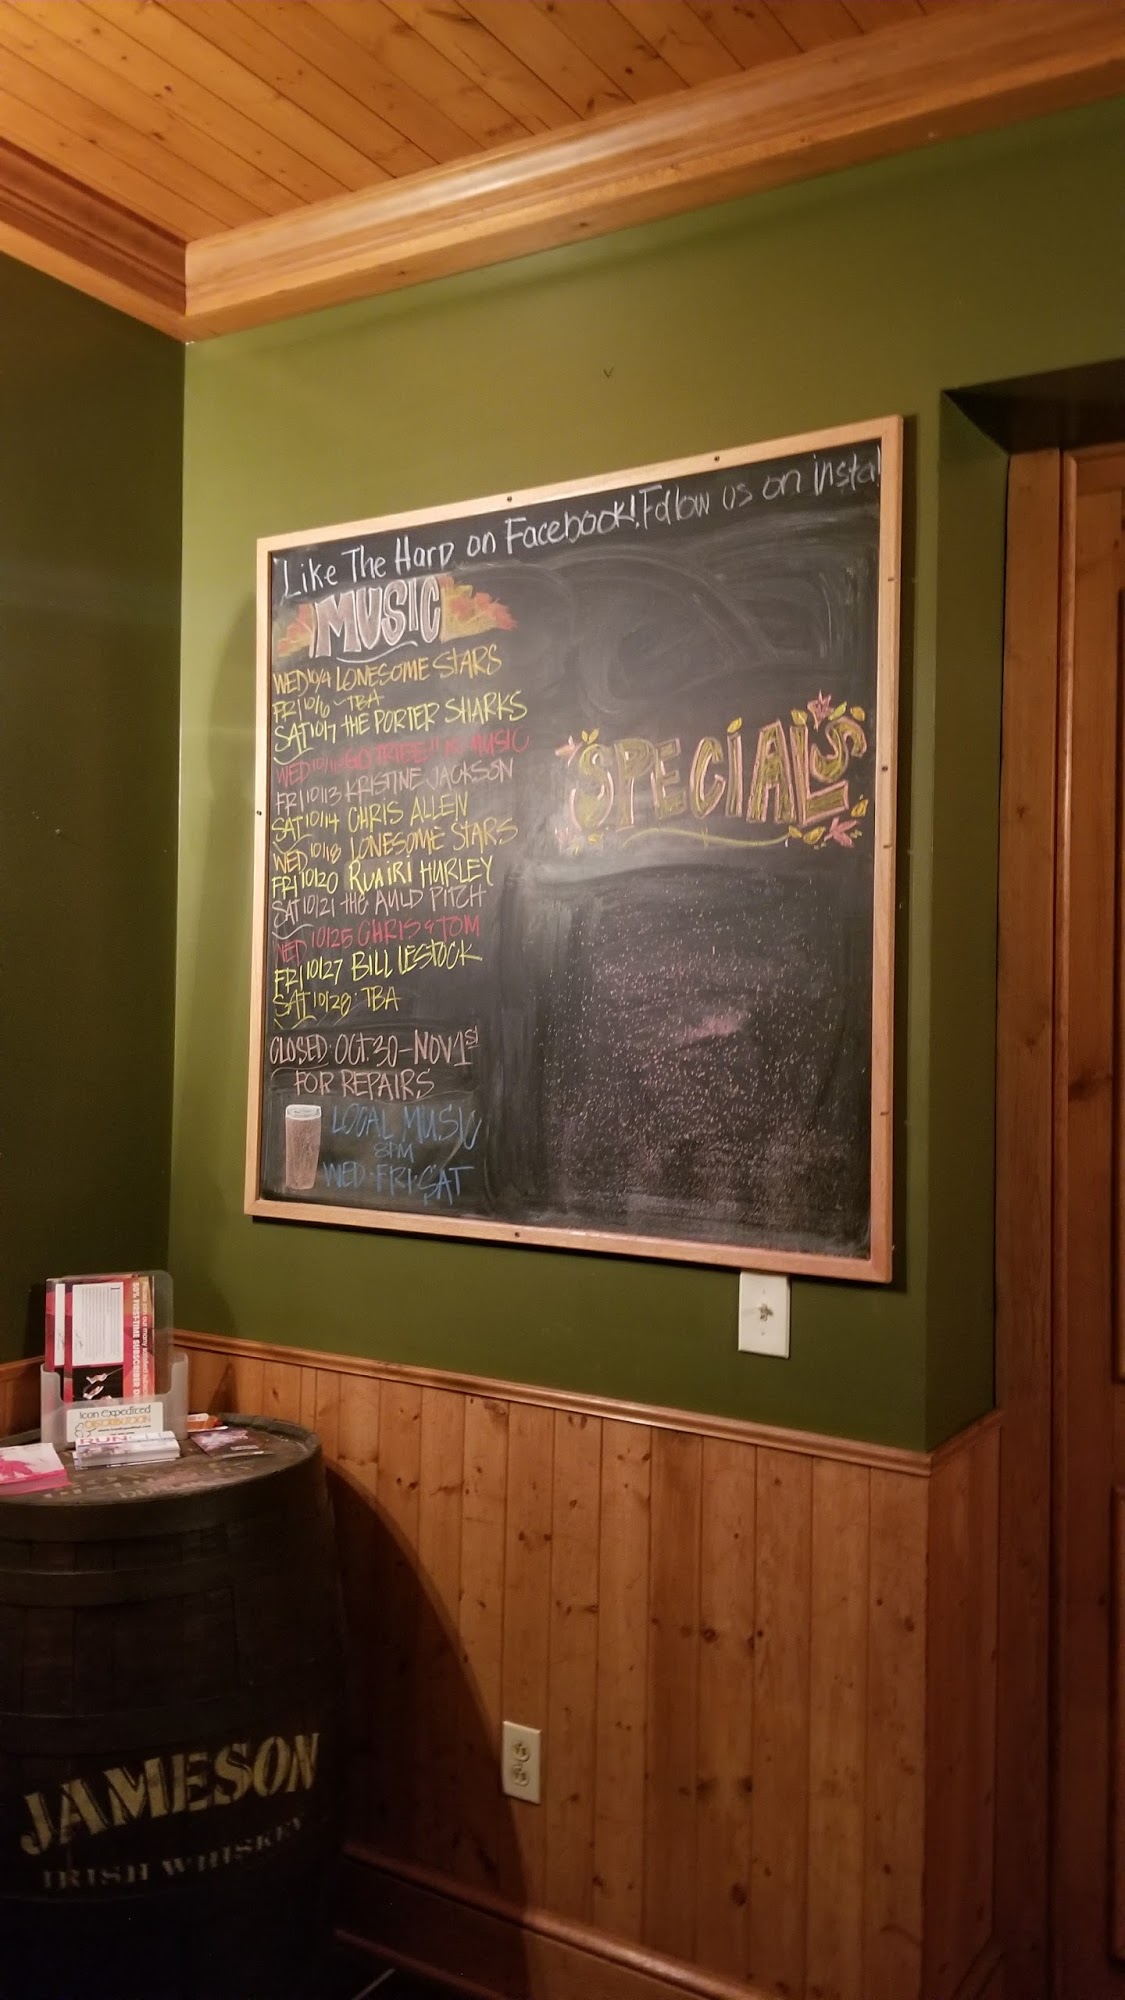 Like The Harp on Facebook! Follow us on insta!
MUSIC
WED 10/4 LONESOME STARS
FRI 10/6 - TBA
SAT 10/7 THE PORTER SHARKS
WED 10/11 GO TRIBE!! NO MUSIC
FRI 10/13 KRISTINE JACKSON
SAT 10/14 CHRIS ALLEN
WED 10/18 LONESOME STARS
FRI 10/20 RUAIRI HURLEY
SAT 10/21 THE AULD PITCH
WED 10/25 CHRIS & TOM
FRI 10/27 BILL LESTOCK
SAT 10/28 · TBA
CLOSED: OCT. 30 - NOV 1st
FOR REPAIRS
LOCAL MUSIC
8PM
WED · FRI · SAT
SPECIALS
50% FIRST-TIME SUBSCRIBER
Icon Expedited
DISTRIBUTION
RUN
JAMESON
IRISH WHISKEY